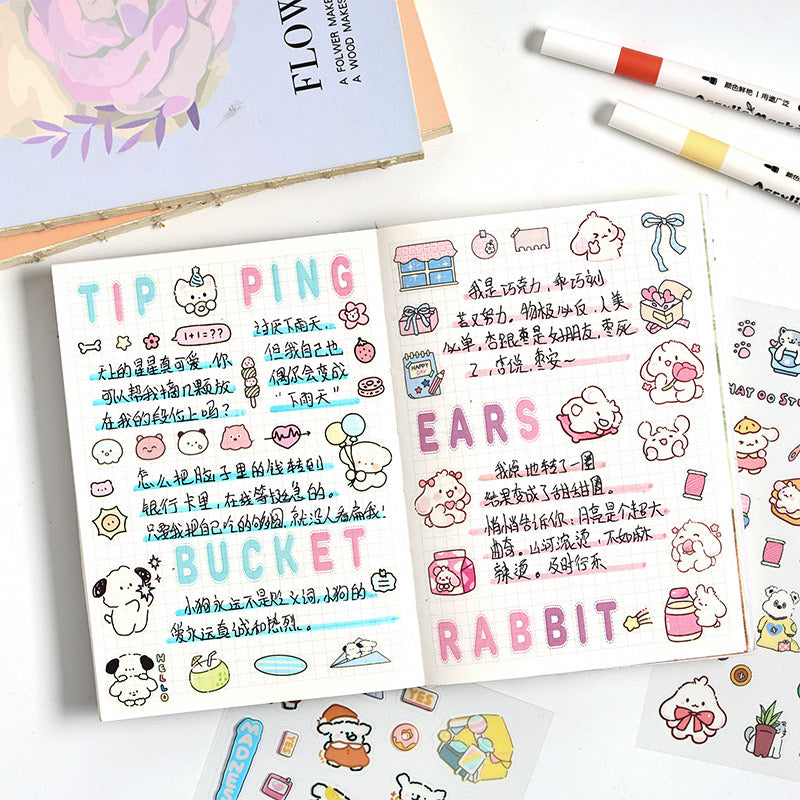 FLOW
A FOLWER MAKE
A WOOD MAKES
颜色鲜艳 | 用途广泛
TIP PING
1+1=??
天上的星星真可爱,你
可以帮我摘几颗放
在我的段位上吗?
讨厌下雨天,
但我自己也
偶尔会变成
“下雨天”
怎么把脑子里的钱转到
银行卡里,在线等挺急的。
只要我把自己吃的够圆,就没人看扁我!
BUCKET
小狗永远不是贬义词,小狗的
爱永远真诚和热烈。
HELLO
我是巧克力,乖巧刻
苦又努力。物极必反,人美
必单。杏跟枣是好朋友,枣死
了,杏说,枣安~
HAPPY
DAY
EARS
我原地转了一圈
结果变成了甜甜圈。
悄悄告诉你:月亮是个超大
曲奇。山河滚烫,不如麻
辣烫。及时行乐
RABBIT
MAY OO
YES
YES
MADNES